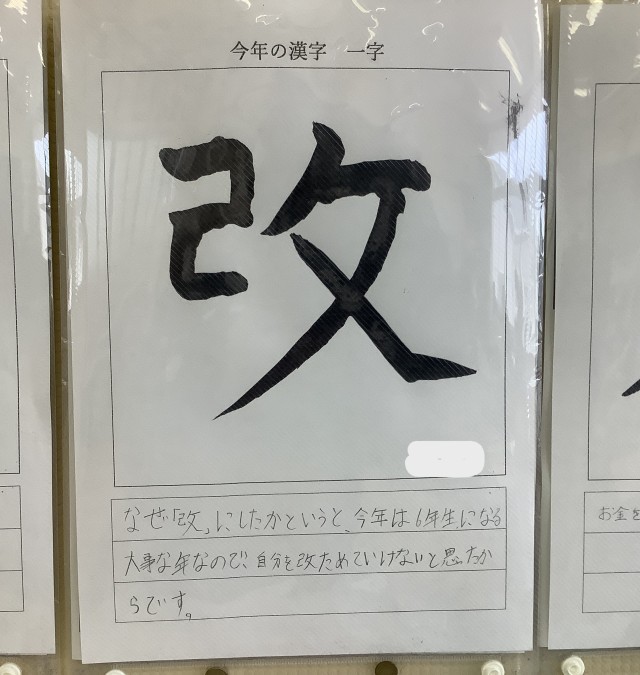 今年の漢字　一字
改
なぜ「改」にしたかというと、今年は6年生になる
大事な年なので、自分を改ためていけないと思ったか
らです。
お金を